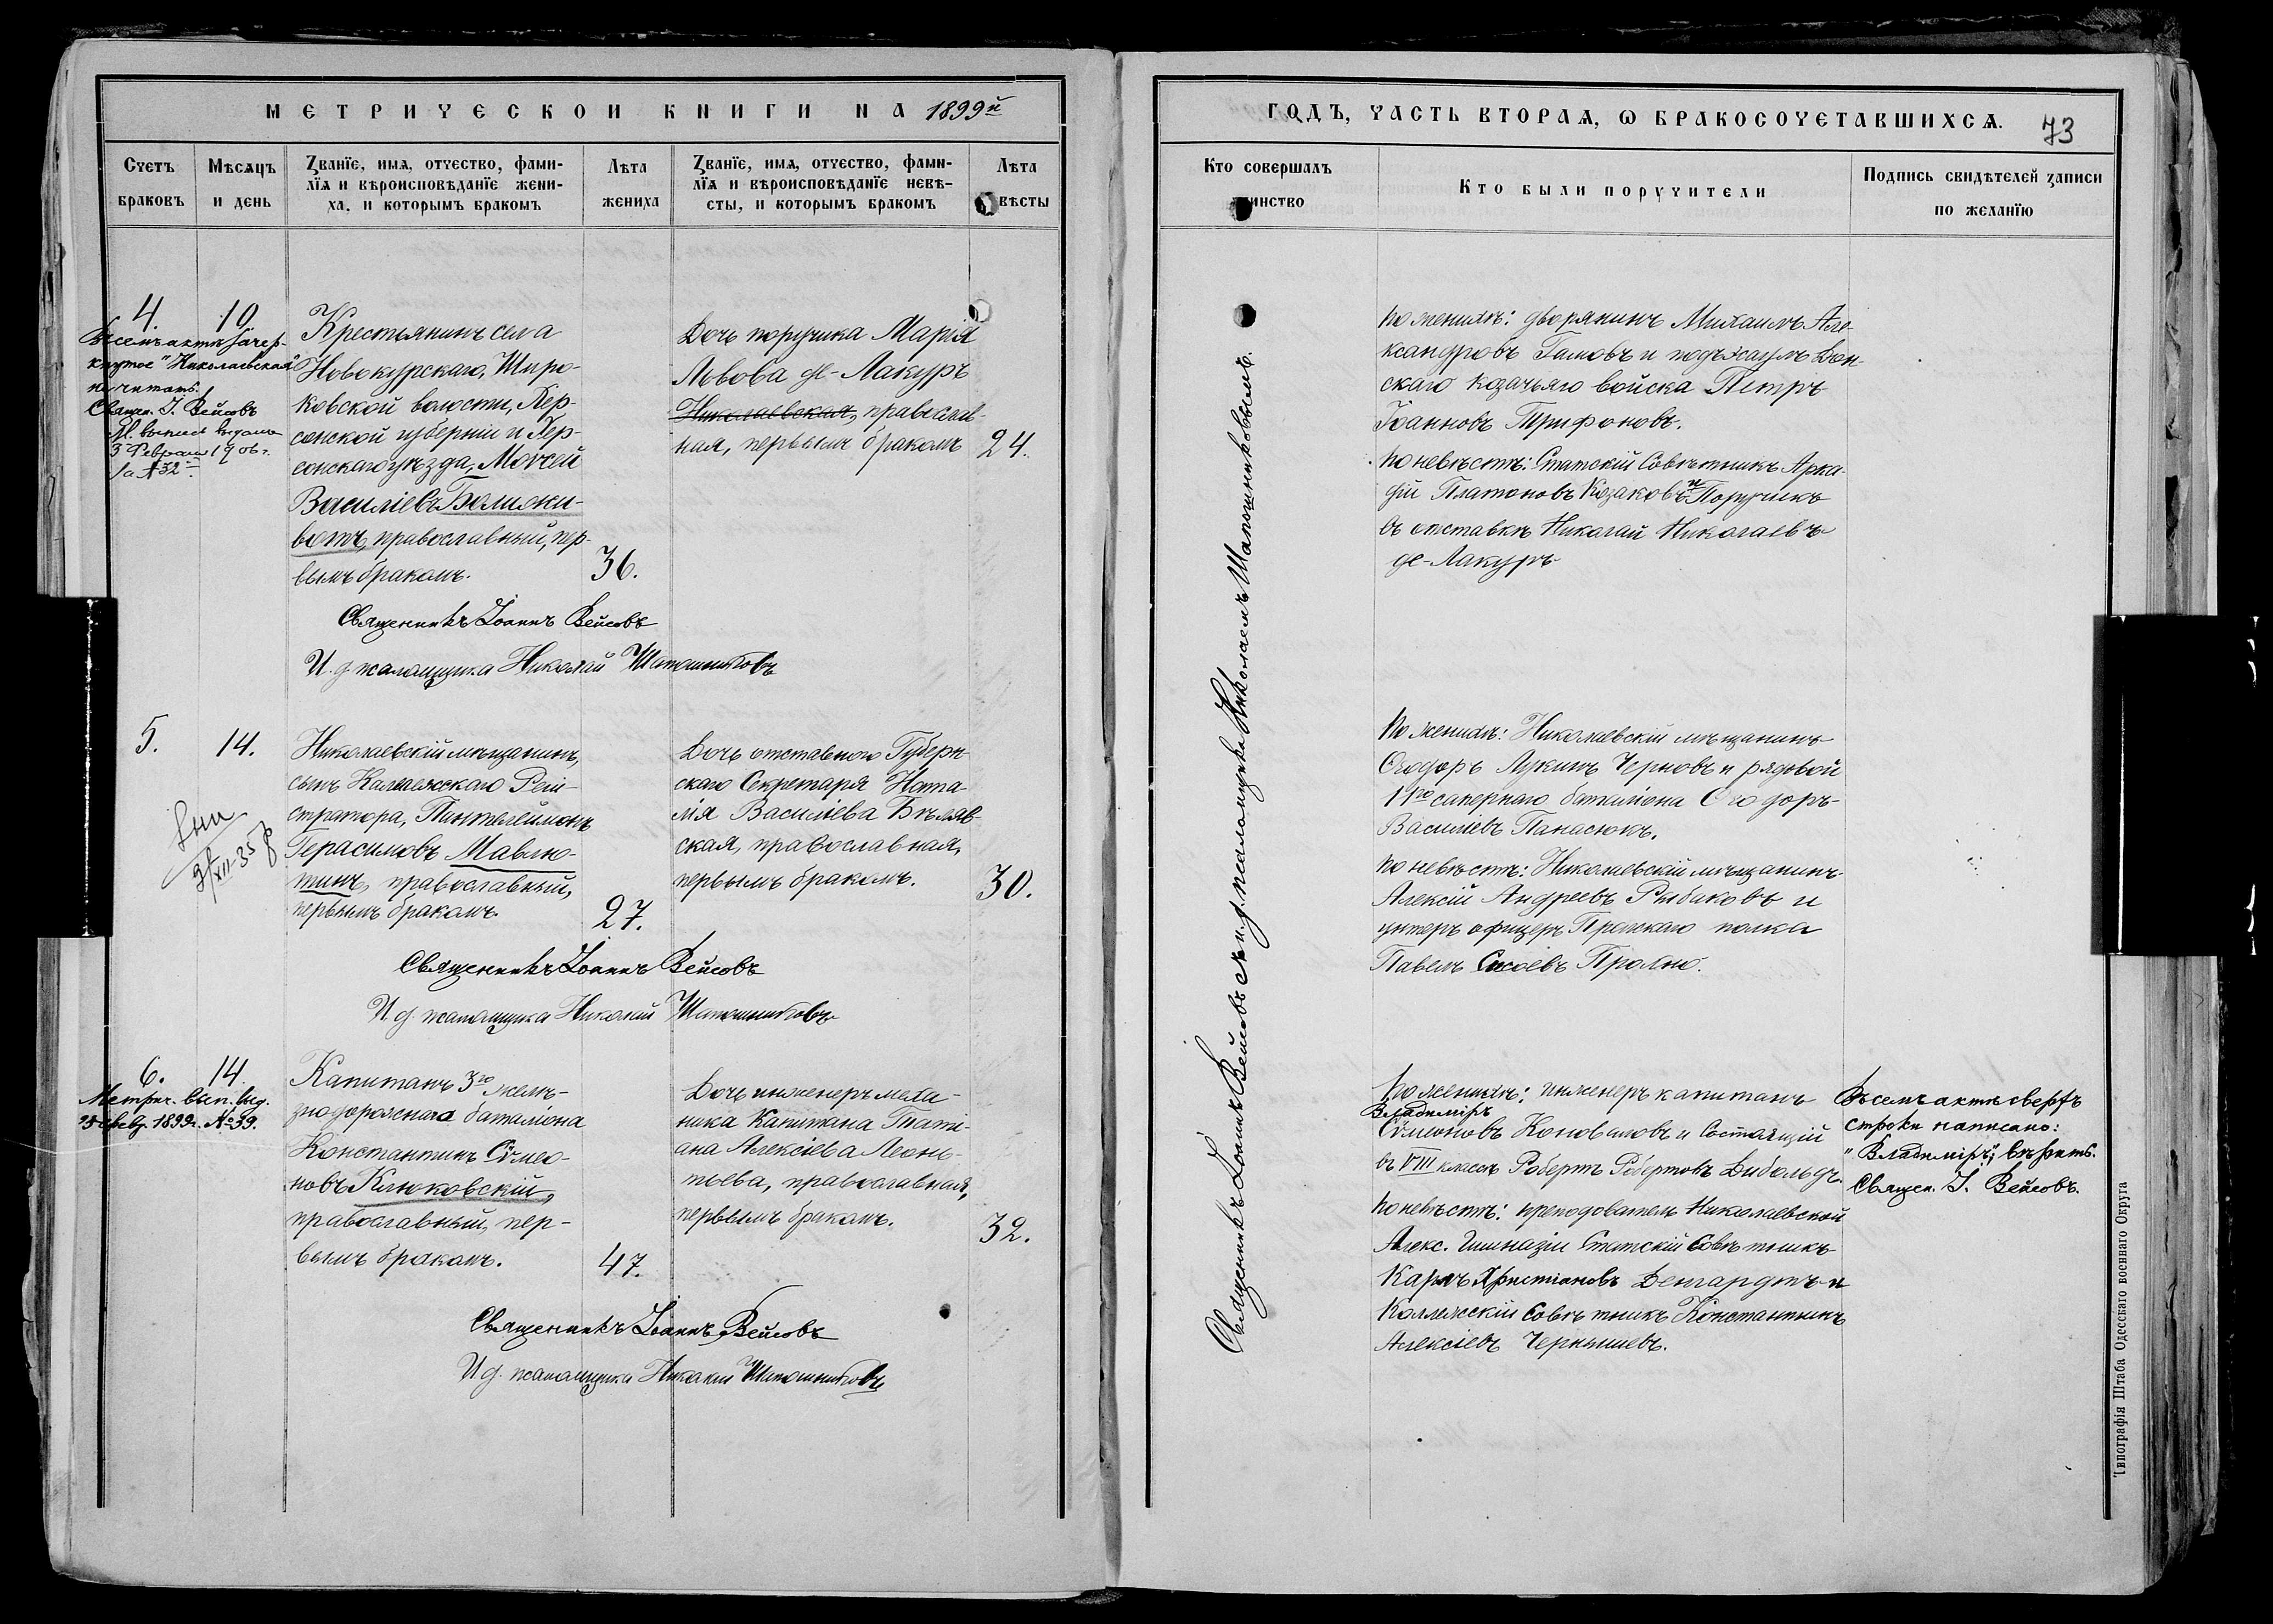 МЕТРИЧЕСКОЙ КНИГИ НА 1899й
Счетъ браковъ
Мѣсяцъ и день
Званїе, имя, отчество, фами-
лїя и вѣроисповѣданїе жени-
ха, и которымъ бракомъ
Лѣта жениха
Званїе, имя, отчество, фами-
лїя и вѣроисповѣданїе невѣ-
сты, и которымъ бракомъ
Лѣта
вѣсты
4.
10
Въ семъ актѣ зачер-
кнутое "Николаевская"
не читать.
Свящ. I. Вейсовъ
М. выпись выдана
3 Февраля 1906 г.
за № 32
Крестьянинъ села
Новокурскаго, Широ-
ковской волости, Хер-
сонской губерніи и Хер-
сонскаго уѣзда, Моѵсей
Василіевъ Болижи-
вотъ, православный, пер-
вымъ бракомъ.
36.
Дочь поручика Марія
Львова де-Лакуръ
Николаевская, православ-
ная, первымъ бракомъ
24.
Священникъ Іоаннъ Вейсовъ
И. д. псаломщика Николай Шапошниковъ
5.
14.
31/XII-35
Николаевскій мѣщанинъ,
сынъ Коллежскаго Реги-
стратора, Пантелеимонъ
Герасимовъ Мавлю-
тинъ, православный,
первымъ бракомъ.
27.
Дочь отставного Губерн-
скаго Секретаря Ната-
лія Василіева Бѣляв-
ская, православная,
первымъ бракомъ.
30.
Священникъ Іоаннъ Вейсовъ
И. д. псаломщика Николай Шапошниковъ
6.
14.
Метрич. вып. выд.
февр. 1899 г. № 39.
Капитанъ 3го желѣ-
знодорожнаго баталіона
Константинъ Сѵмео-
новъ Клюковскій,
православный, пер-
вымъ бракомъ.
47.
Дочь инженеръ меха-
ника Капитана Тати-
ана Алексіева Леонь-
тьева, православная,
первымъ бракомъ.
32.
Священникъ Іоаннъ Вейсовъ
И. д. псаломщика Николай Шапошниковъ
ГОДЪ, ЧАСТЬ ВТОРАЯ, Ѡ БРАКОСОЧЕТАВШИХСЯ.
73
Кто совершалъ
инство
Кто были поручители
Подпись свидѣтелей записи
по желанїю
Священникъ Іоаннъ Вейсовъ съ и. д. псаломщика Николаемъ Шапошниковымъ.
По женихѣ: дворянинъ Михаилъ Але-
ксандровъ Гамовъ и подъэсаулъ Дон-
скаго Козачьяго войска Петръ
Іоанновъ Трифоновъ.
По невѣстѣ: Статскій Совѣтникъ Арка-
дій Платоновъ Козаковъ и Поручикъ
въ отставкѣ Николай Николаевъ
де-Лакуръ
По женихѣ: Николаевскій мѣщанинъ
Ѳеодоръ Лукинъ Черновъ и рядовой
11го сапернаго баталіона Ѳеодоръ
Василіевъ Панасюкъ.
По невѣстѣ: Николаевскій мѣщанинъ
Алексій Андреевъ Рыбаковъ и
унтеръ офицеръ Пражскаго полка
Павелъ Сысоевъ
По женихѣ: инженеръ капитанъ
Владиміръ
Сѵмеоновъ Коноваловъ и Состоящій
въ VIII классѣ Робертъ Робертовъ Дибольдъ.
По невѣстѣ: преподователь Николаевской
Алекс. Гимназіи Статскій Совѣтникъ
Карлъ Христіановъ Денгардтъ и
Коллежскій Совѣтникъ Константинъ
Алексіевъ Чернышевъ.
Въ семъ актѣ сверхъ
строки написано:
"Владиміръ"; вѣрить.
Свящ. I. Вейсовъ.
Типографія Штаба Одесскаго военнаго Округа